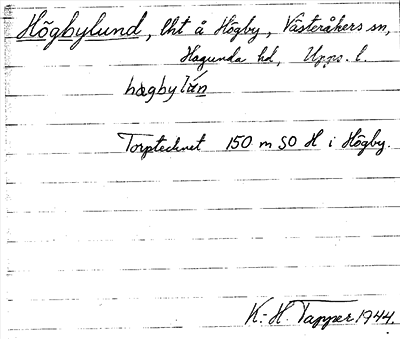 Högbylund, lht å Högby, Västeråkers sn,
Hagunda hd, Upps. l.
Torptecknet 150 m SO H i Högby.
K.-H Tapper 1944.